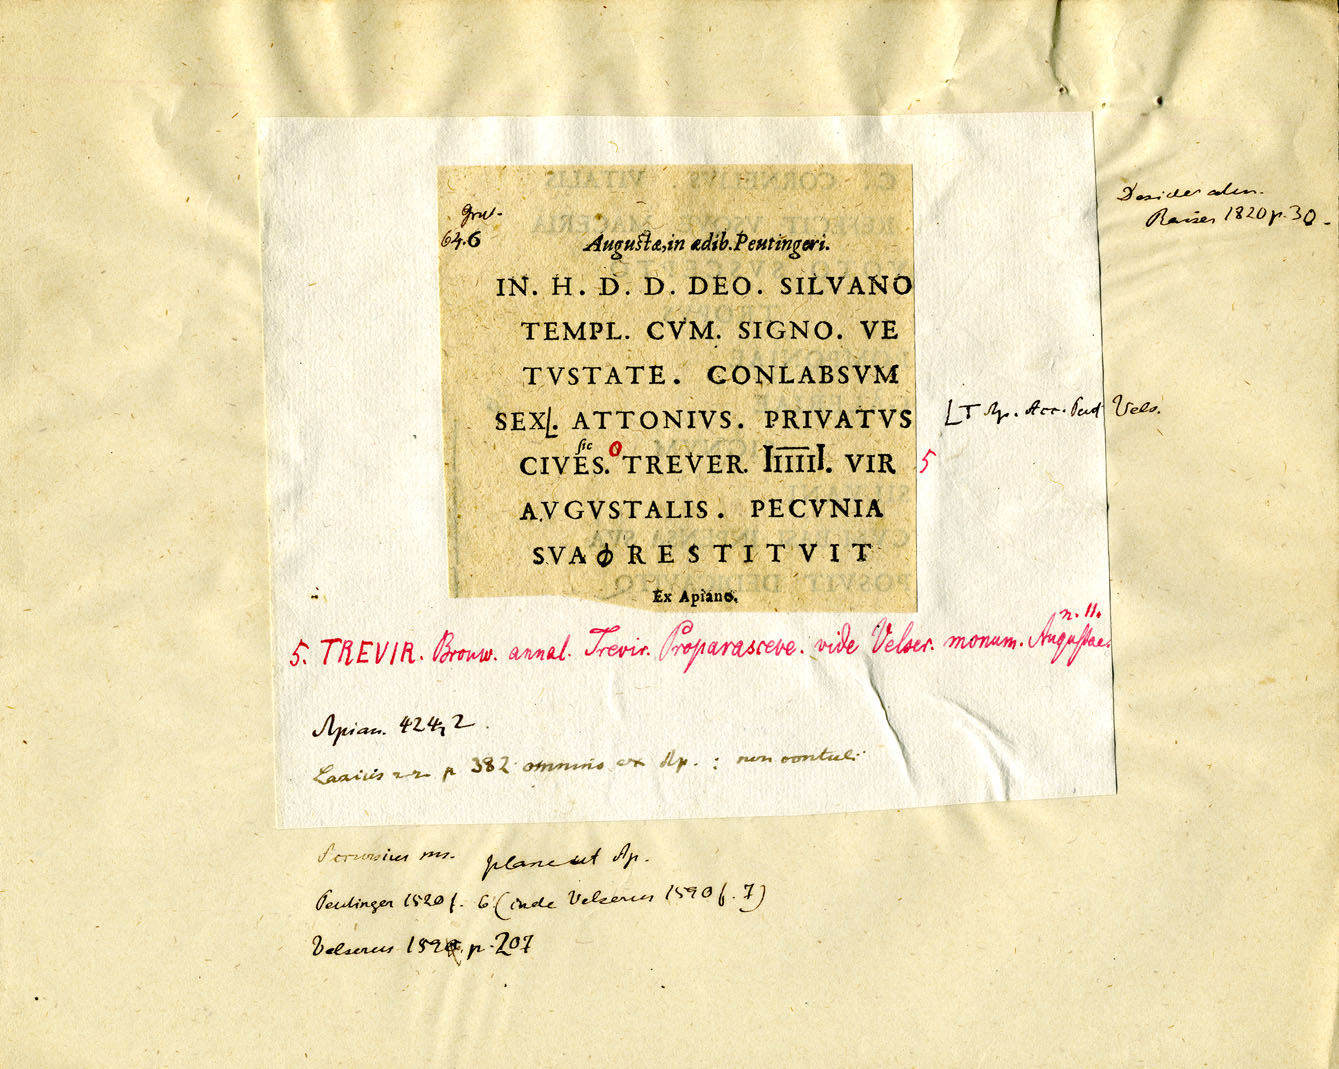 Grut.
64.6
Augustæ, in ædib. Peutingeri.
IN. H. D. D. DEO. SILVANO
TEMPL. CVM. SIGNO. VE
TVSTATE. CONLABSVM
SEXL. ATTONIVS. PRIVATVS
sic
CIVES. TREVER. IIIIII. VIR 5
AVGVSTALIS. PECVNIA
SVA RESTITVIT
Ex Apiano.
Raiser 1820 p. 30.
LT Ap. Acc. Peut Vels.
n. 11.
5. TREVIR. Brouw. annal. Trevir. Proparasceve. vide Velser. monum. Augustae.
Apian. 424, 2.
Lazius p 382 omnino ex Ap. : non contuli
Accursius ms. plane ut Ap.
Peutinger 1520 f. 6 (inde Velserus 1590 f. 7)
Velserus p. 207